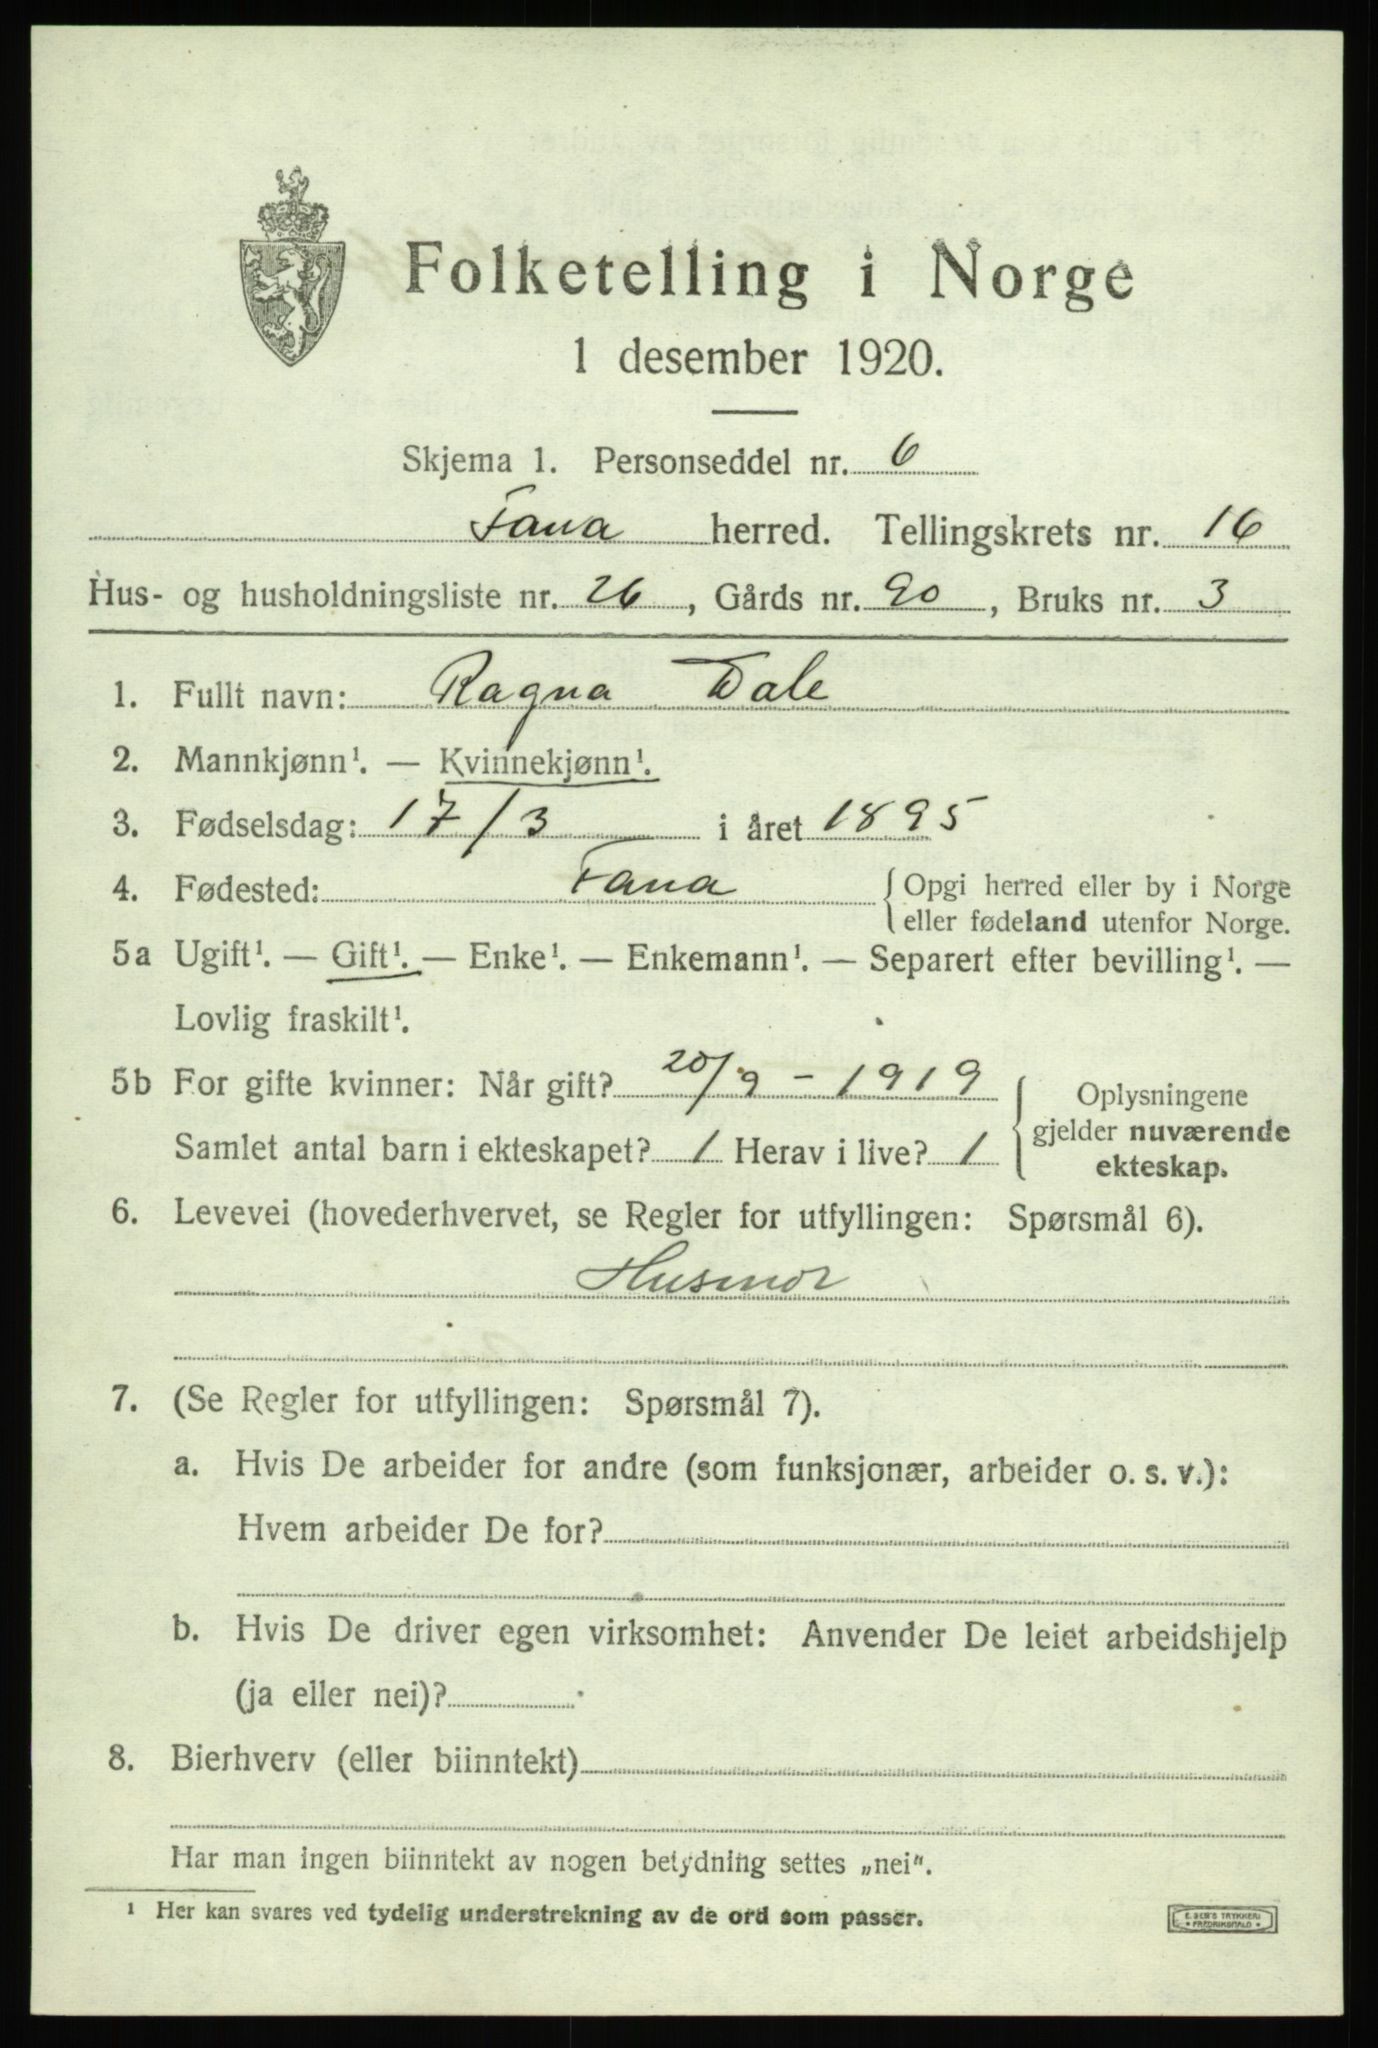 Folketelling i Norge
1 desember 1920.
Skjema 1. Personseddel nr. 6
Fana herred. Tellingskrets nr. 16
Hus- og husholdningsliste nr. 26, Gårds nr. 90, Bruks nr. 3
1. Fullt navn: Ragna Dale
2. Mannkjønn¹. — Kvinnekjønn¹.
3. Fødselsdag: 17/3 i året 1895
4. Fødested: Fana { Opgi herred eller by i Norge
eller fødeland utenfor Norge.
5a Ugift¹. — Gift¹. — Enke¹. — Enkemann¹. — Separert efter bevilling¹. —
Lovlig fraskilt¹.
5b For gifte kvinner: Når gift? 20/9 - 1919
Samlet antal barn i ekteskapet? 1 Herav i live? 1
Oplysningene
gjelder nuværende
ekteskap.
6. Levevei (hovederhvervet, se Regler for utfyllingen: Spørsmål 6).
Husmor
7. (Se Regler for utfyllingen: Spørsmål 7).
a. Hvis De arbeider for andre (som funksjonær, arbeider o. s. v.):
Hvem arbeider De for?
b. Hvis De driver egen virksomhet: Anvender De leiet arbeidshjelp
(ja eller nei)?
8. Bierhverv (eller biinntekt)
Har man ingen biinntekt av nogen betydning settes „nei".
¹ Her kan svares ved tydelig understrekning av de ord som passer.
E. SEM'S TRYKKERI
FREDRIKSHALD